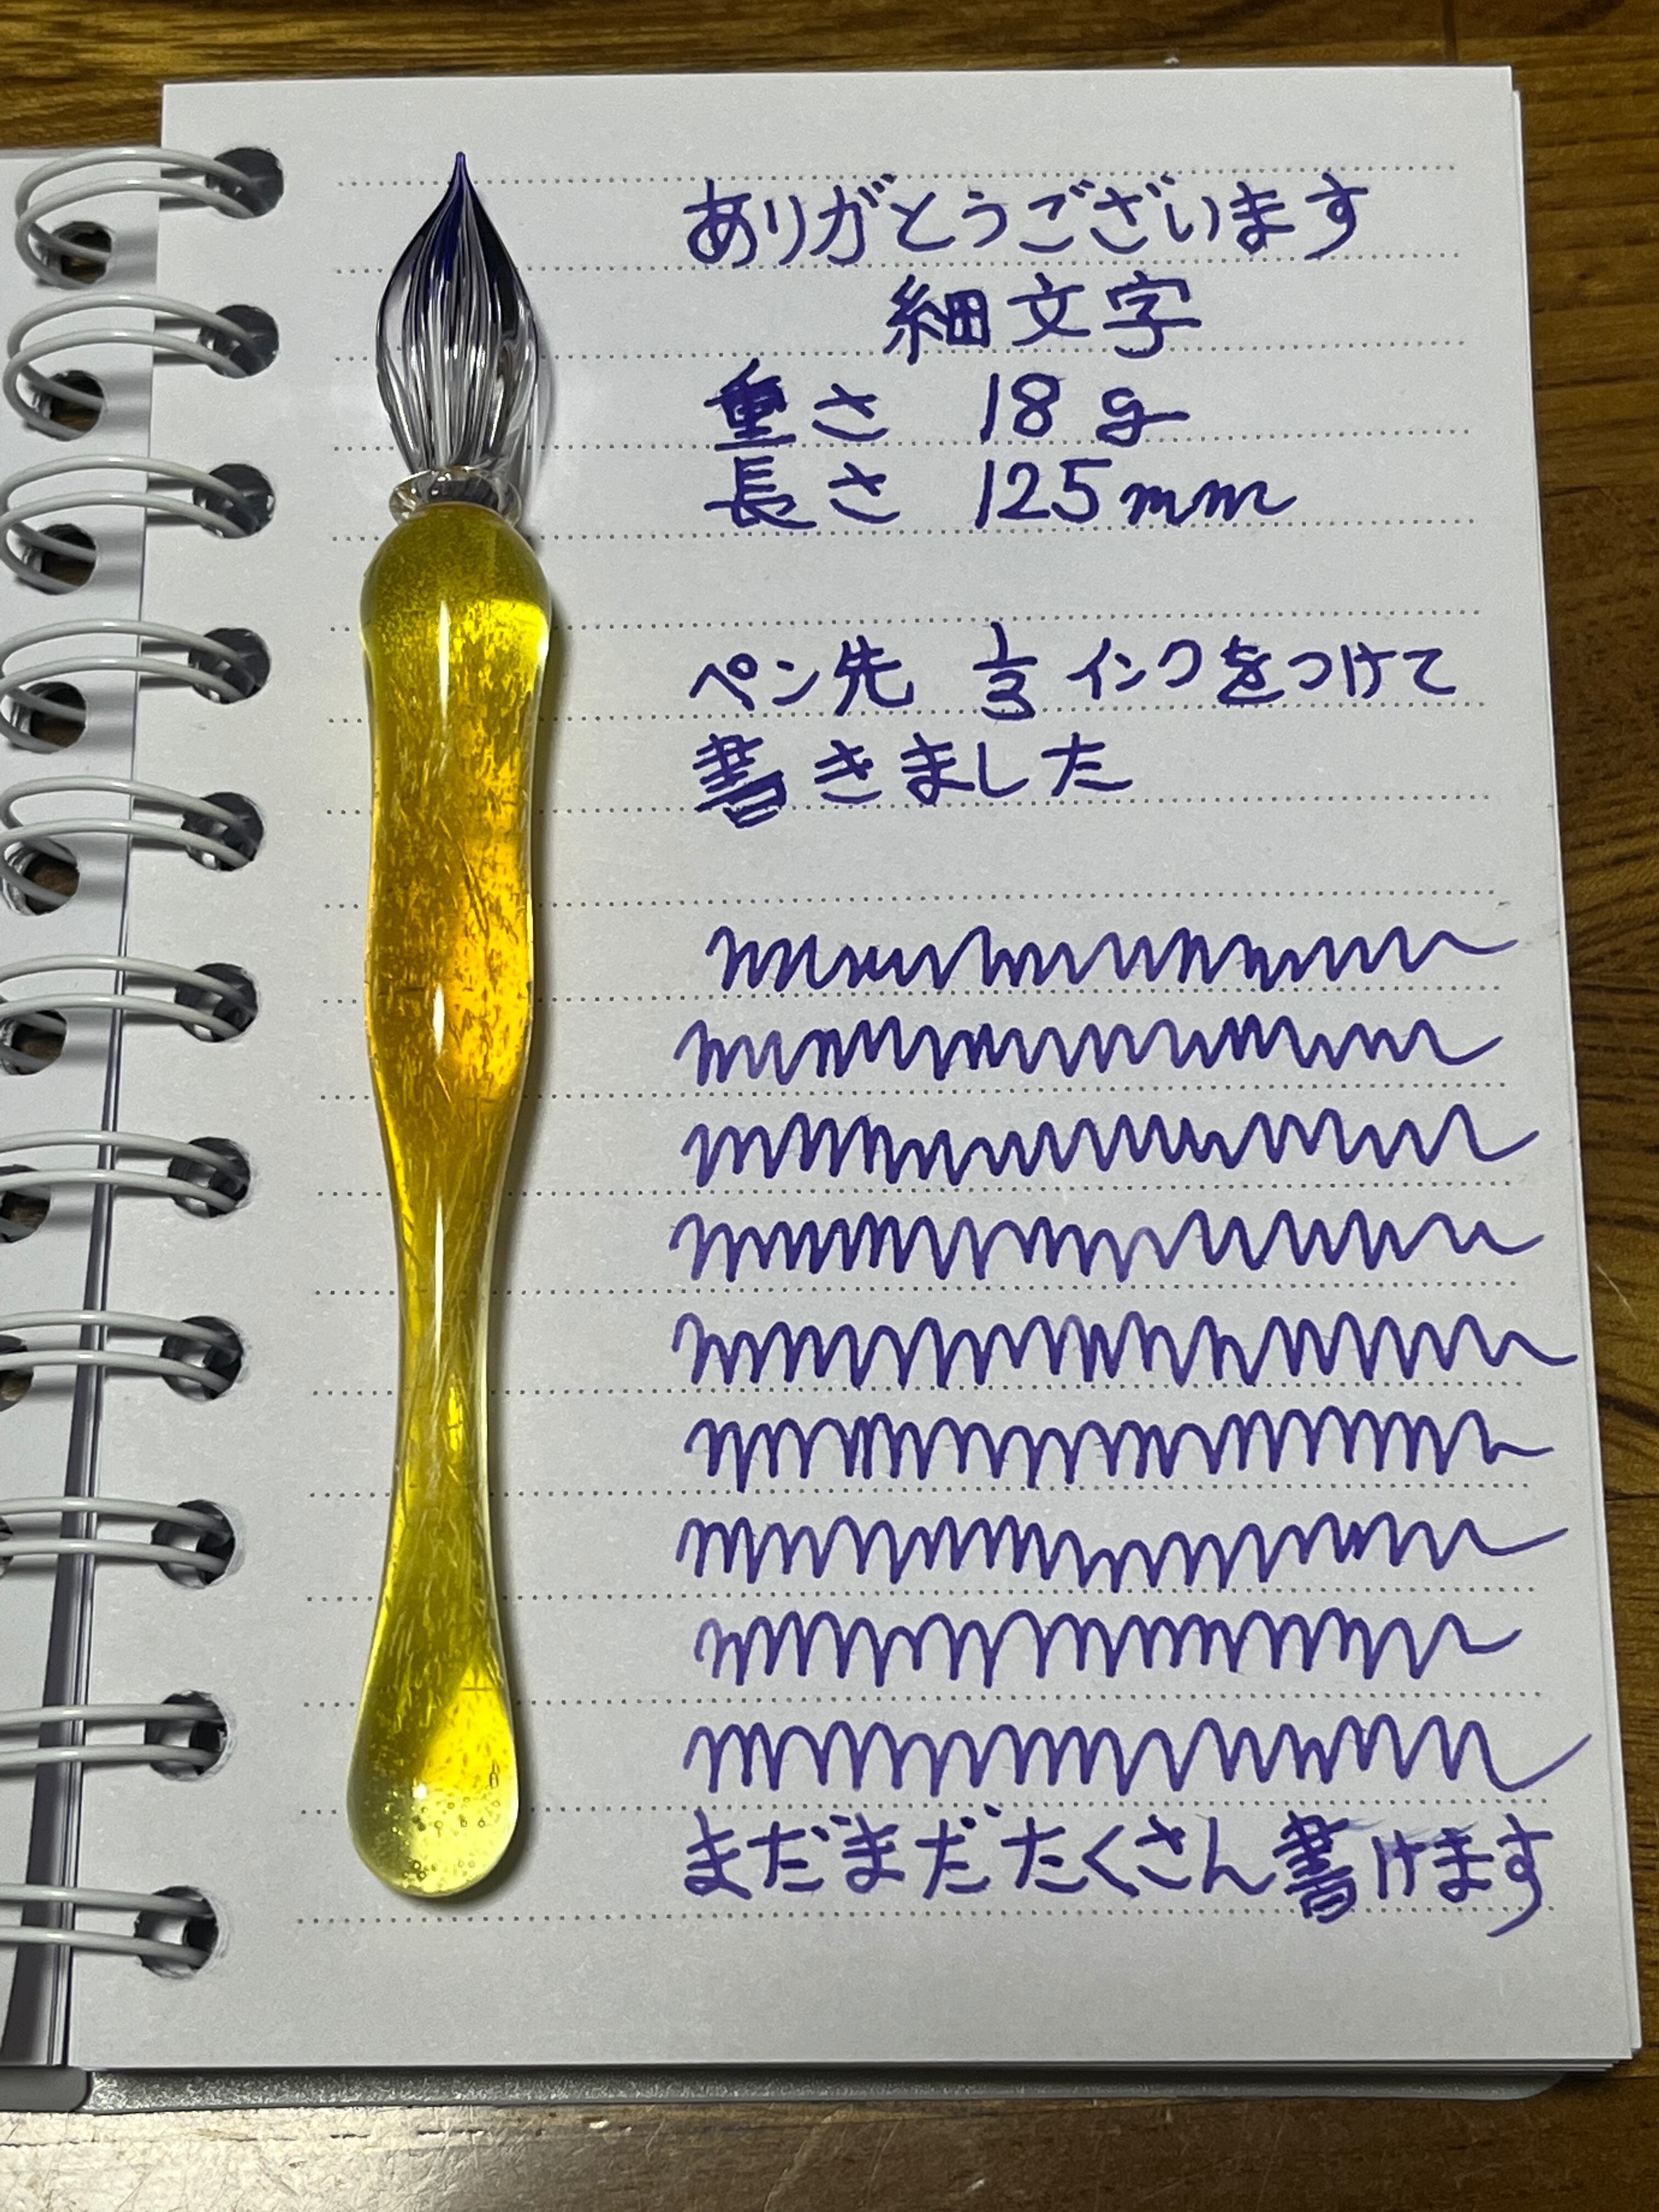 ありがとうございます
細文字
重さ 18g
長さ 125mm
ペン先 1/3 インクをつけて
書きました
まだまだたくさん書けます